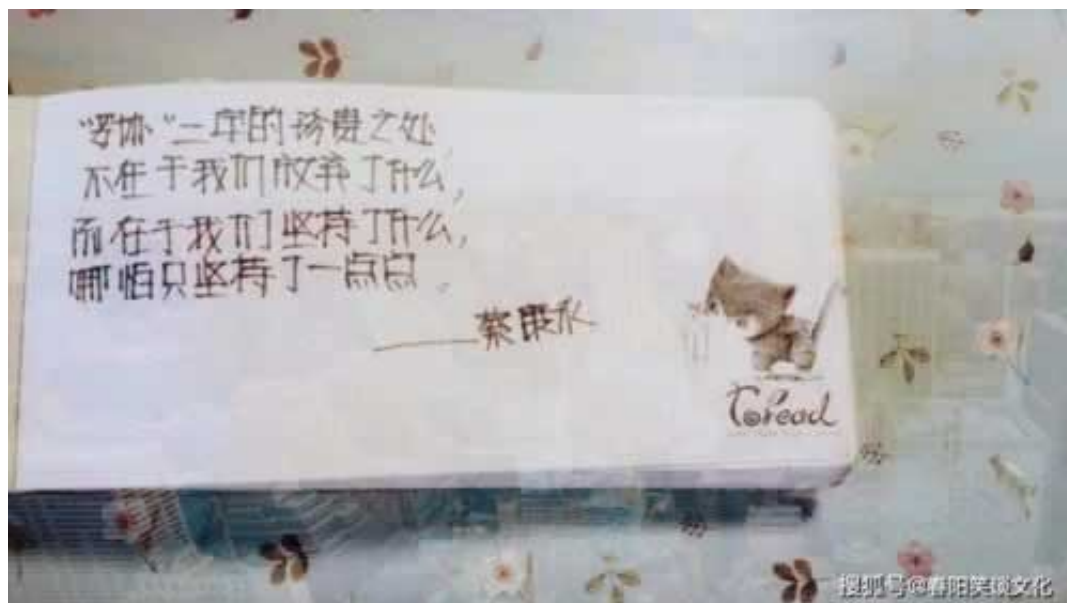 “字体”二字的珍贵之处
不在于我们放弃了什么,
而在于我们坚持了什么,
哪怕只坚持了一点点。
——蔡康永
Toread
搜狐号@春阳笑谈文化